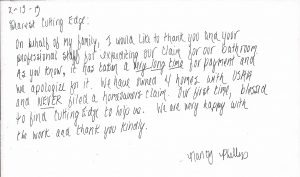 2-13-19
Dearest Cutting Edge:
On behalf of my family, I would like to thank you and your
professional staff for expediting our claim for our bathroom
As you know, it has taken a very long time for payment and
we apologize for it. We have owned 4 homes with USAA
and NEVER filed a homeowners claim. Our first time, blessed
to find Cutting Edge to help us. We are very happy with
the work and thank you kindly.
-Nancy